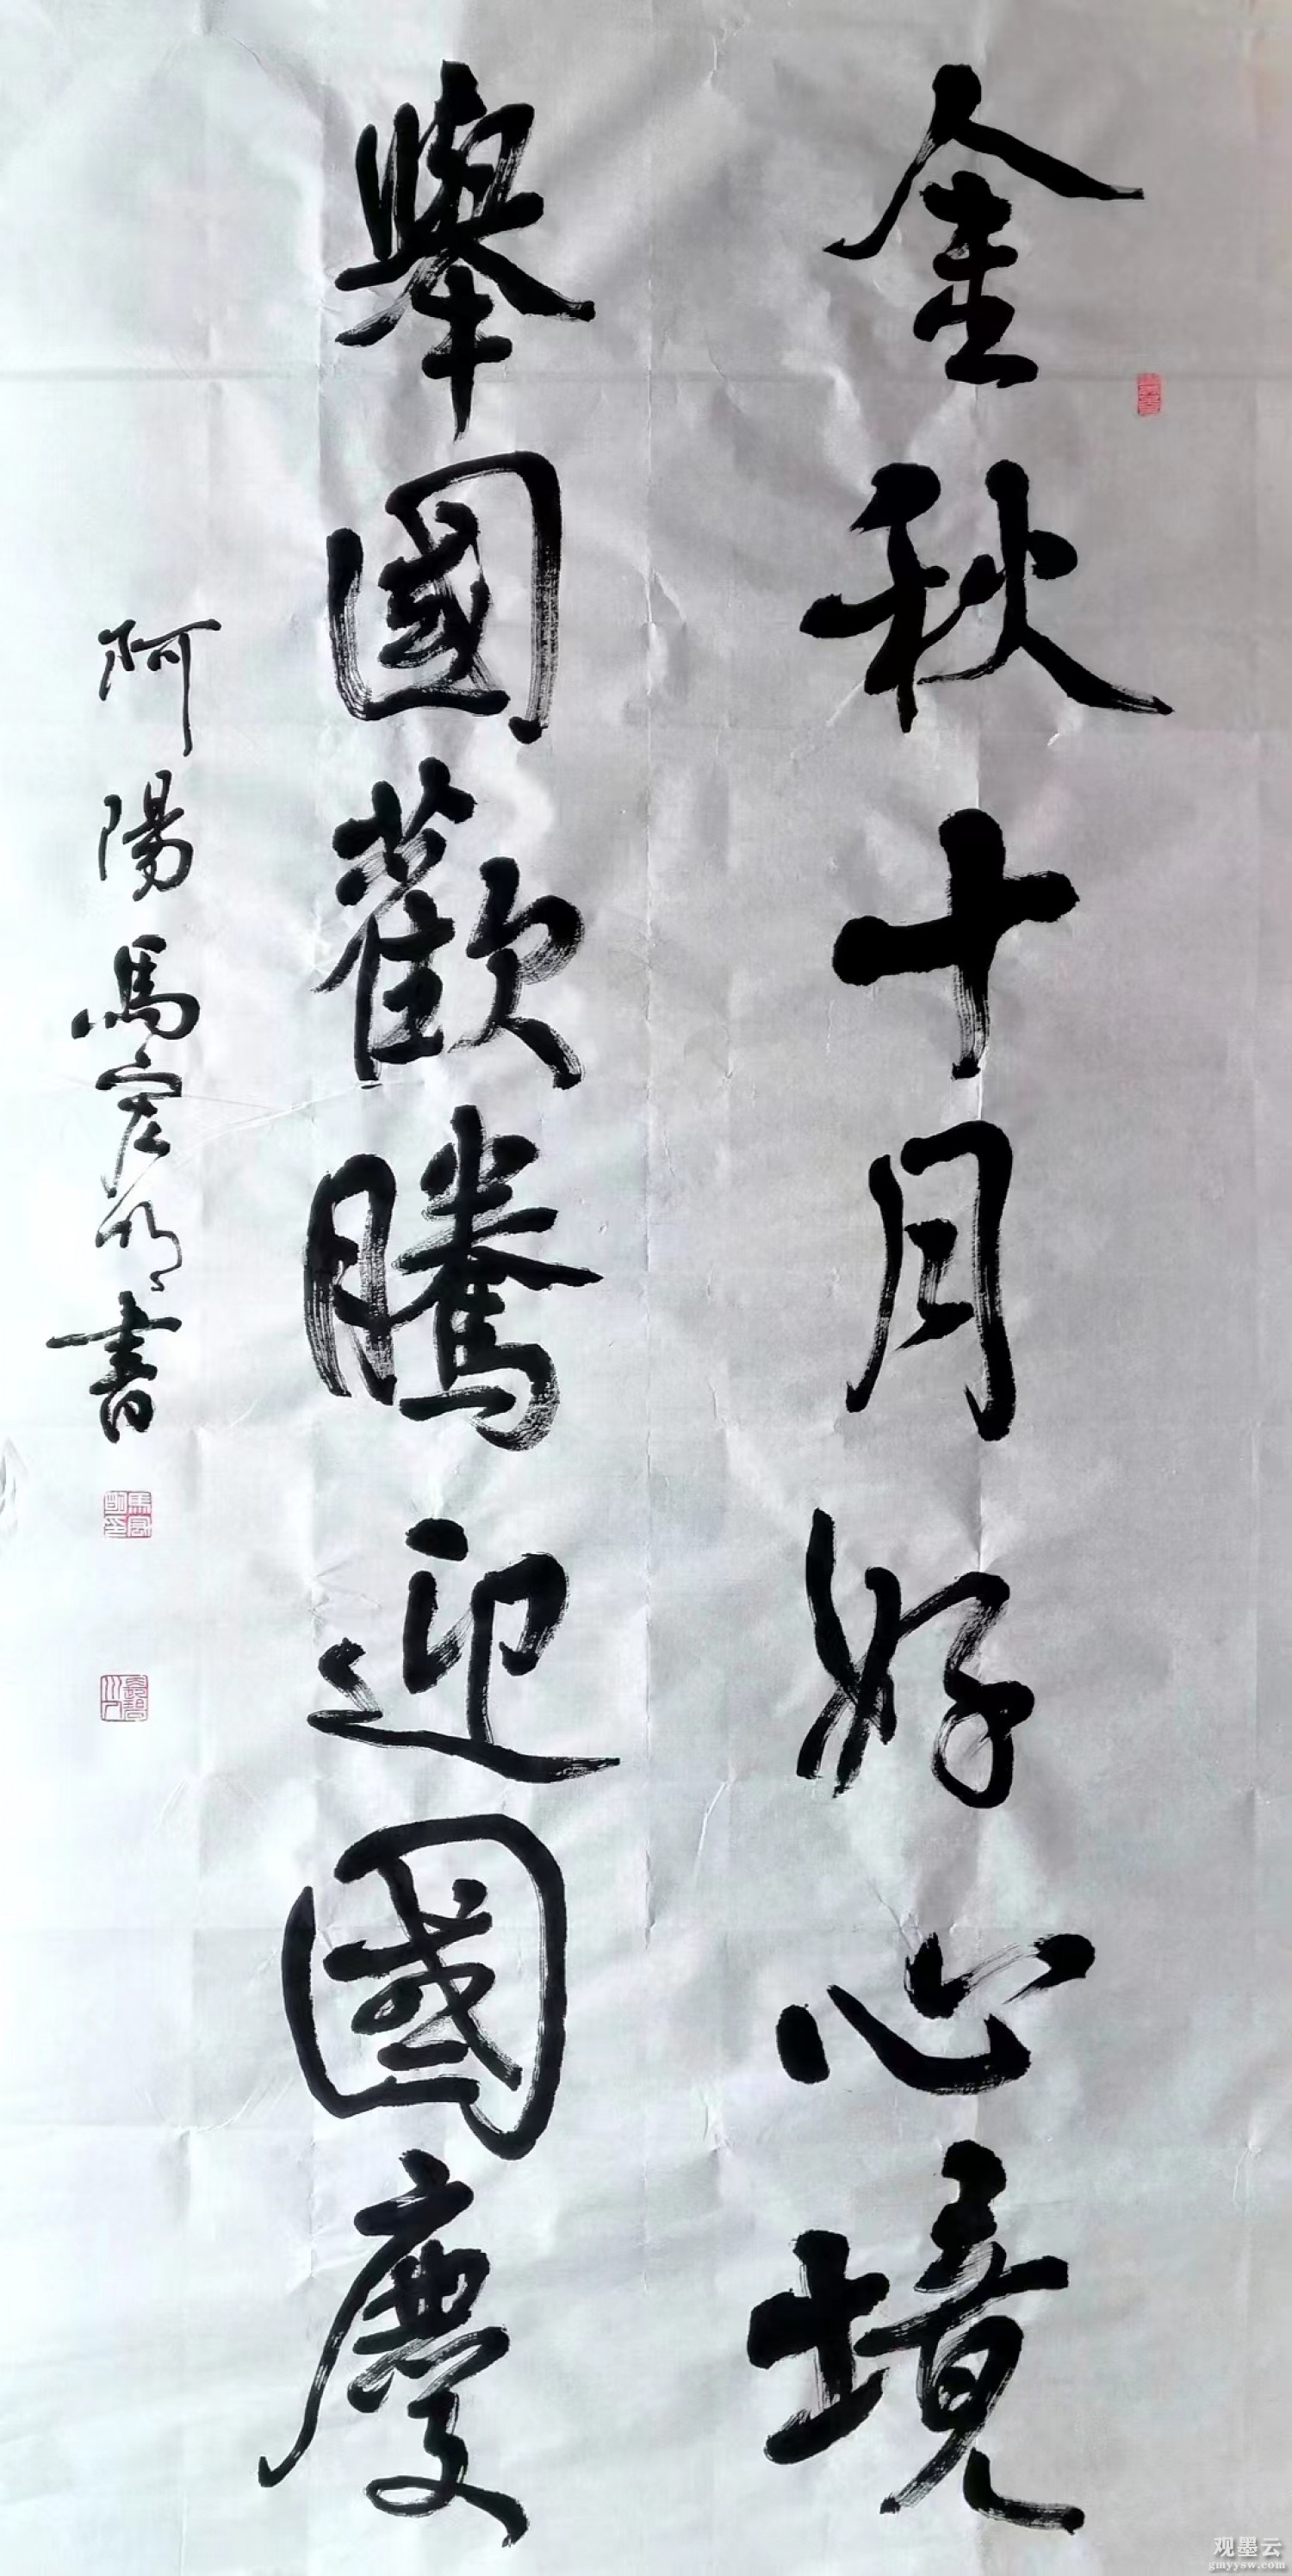 金秋十月好心境
舉國歡騰迎國慶
阿陽馬宏明書
观墨云
gmyysw.com